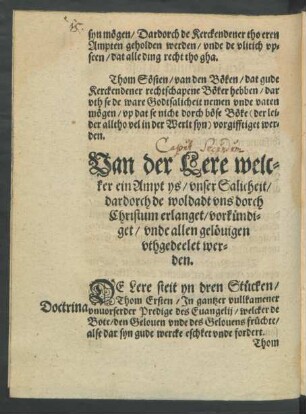 syn mögen / Dardorch de Kerckendener tho eren
Ampten geholden werden / vnde de vlitich vp-
seen / dat alle ding recht tho gha.
Thom Sösten / van den Böken / dat gude
Kerckendener rechtschapene Böker hebben / dar
vth se de ware Godtsalicheit nemen vnde vaten
mögen / vp dat se nicht dorch böse Böke (der lei-
der altho vel in der Werlt syn) vorgifftiget wer-
den.
Caput Secundum
Van der Lere wel-
ker ein Ampt ys / vnser Salicheit /
dardorch de woldadt vns dorch
Christum erlanget / vorkündi-
get / vnde allen gelöuigen
vthgedeelet wer-
den.
Doctrina.
DE Lere steit yn dren Stücken /
Thom Ersten / In gantzer vullkamener
vnuorserder Predige des Euangelij / welcker de
Bote / den Gelouen vnde des Gelouens früchte /
alse dar syn gude wercke eschket vnde fordert.
Thom